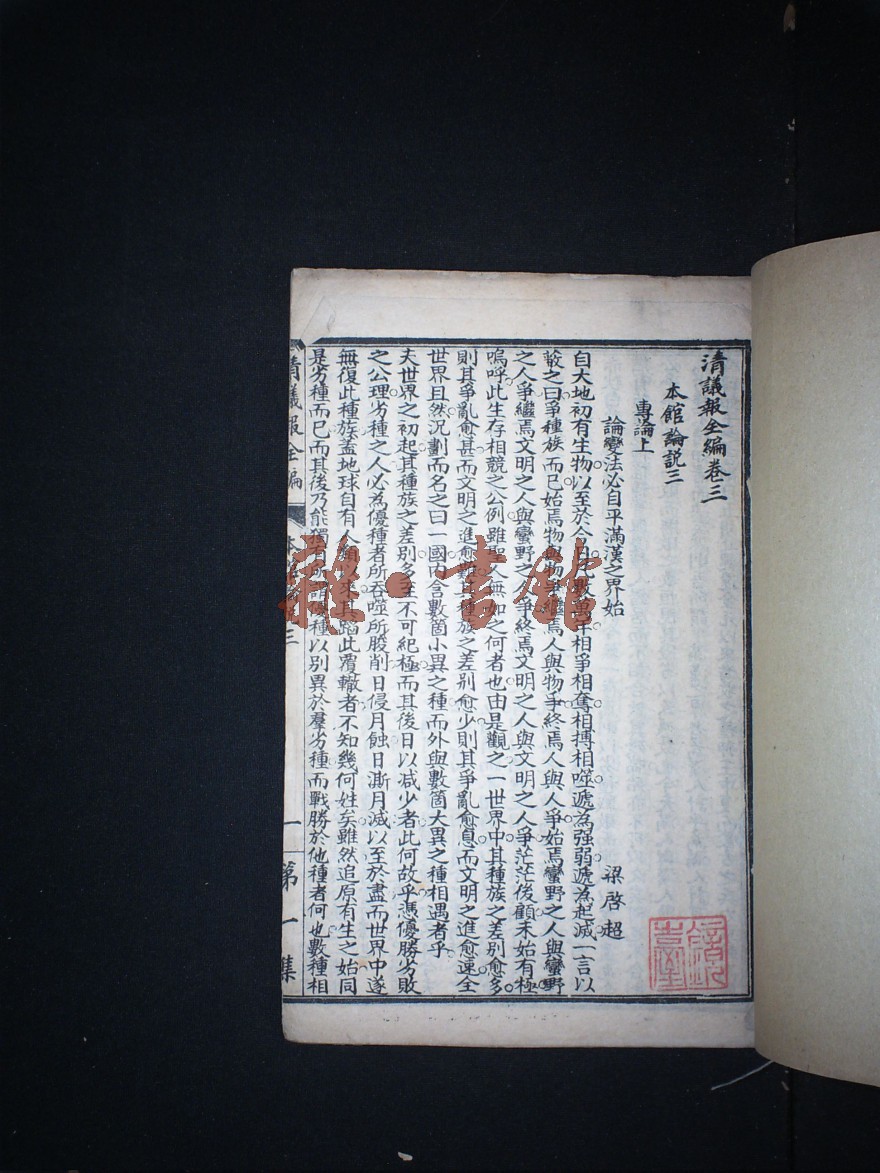 清議報全編卷三
本館論説三
專論上
論變法必自平滿漢之界始
梁啓超
自大地初有生物以至於今日凡數萬年相爭相奪相搏相噬遞為強弱遞為起滅一言以
蔽之曰爭種族而已始焉物與物爭繼焉人與物爭終焉人與人爭始焉蠻野之人與蠻野
之人爭繼焉文明之人與蠻野之人爭終焉文明之人與文明之人爭茫茫後顧未始有極
嗚呼此生存相競之公例雖聖人無如之何者也由是觀之一世界中其種族之差别愈多
則其爭亂愈甚而文明之進愈難其種族之差别愈少則其爭亂愈息而文明之進愈速全
世界且然況劃而名之曰一國内含數箇小異之種而外與數箇大異之種相遇者乎
夫世界之初起其種族之差别多至不可紀極而其後日以减少者此何故乎憑優勝劣敗
之公理劣種之人必為優種者所吞噬所朘削日侵月蝕日澌月滅以至於盡而世界中遂
無復此種族盖地球自有人類以來其蹈此覆轍者不知幾何姓矣雖然追原有生之始同
是劣種而已而其後乃能獨有所謂優種以别異於羣劣種而戰勝於他種者何也數種相
清議報全編
本館論説三
一
第一集
雜·書館